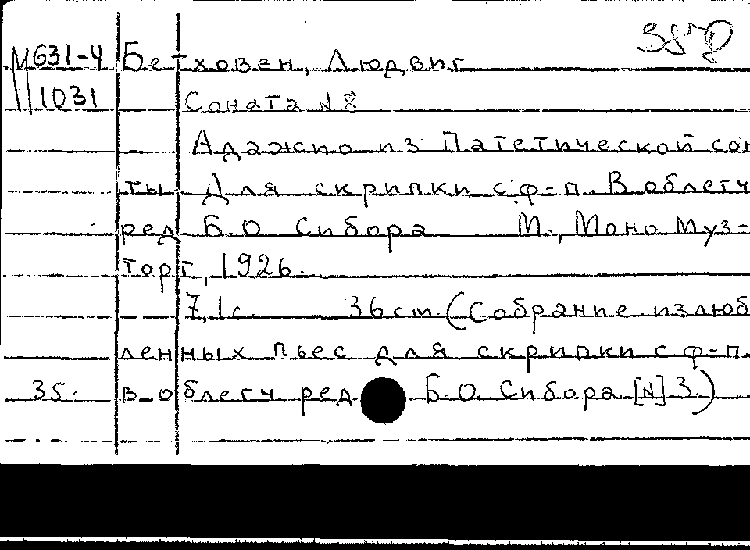 М631-4 Бетховен, Людвиг
1031 Соната N 8
Адажио из Патетической сон
ты Для скрипки с ф-п. В облегч
ред Б.О Сибора М., Моно Муз-
торг, 1926.
7,1с. 36 cm (Собрание излюб
ленных пьес для скрипки с ф-п.
35. в облегч ред Б.О. Сибора [N] 3)